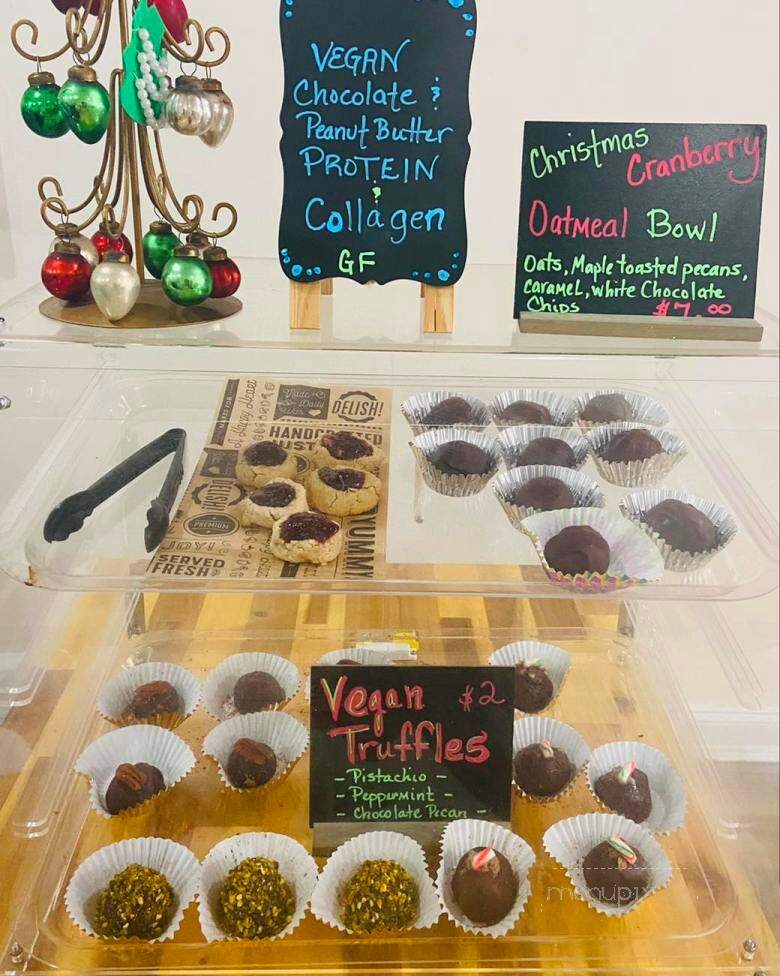 VEGAN
Chocolate &
Peanut Butter
PROTEIN
&
Collagen
GF
Christmas
Cranberry
Oatmeal Bowl
Oats, Maple toasted pecans,
caramel, white Chocolate
Chips $7.00
Made
Daily
DELISH!
HANDCRAFTED
DELISH!
PREMIUM
JOY!
SERVED
FRESH
YUMMY
Vegan $2
Truffles
- Pistachio -
- Peppermint -
- Chocolate Pecan -
menupix